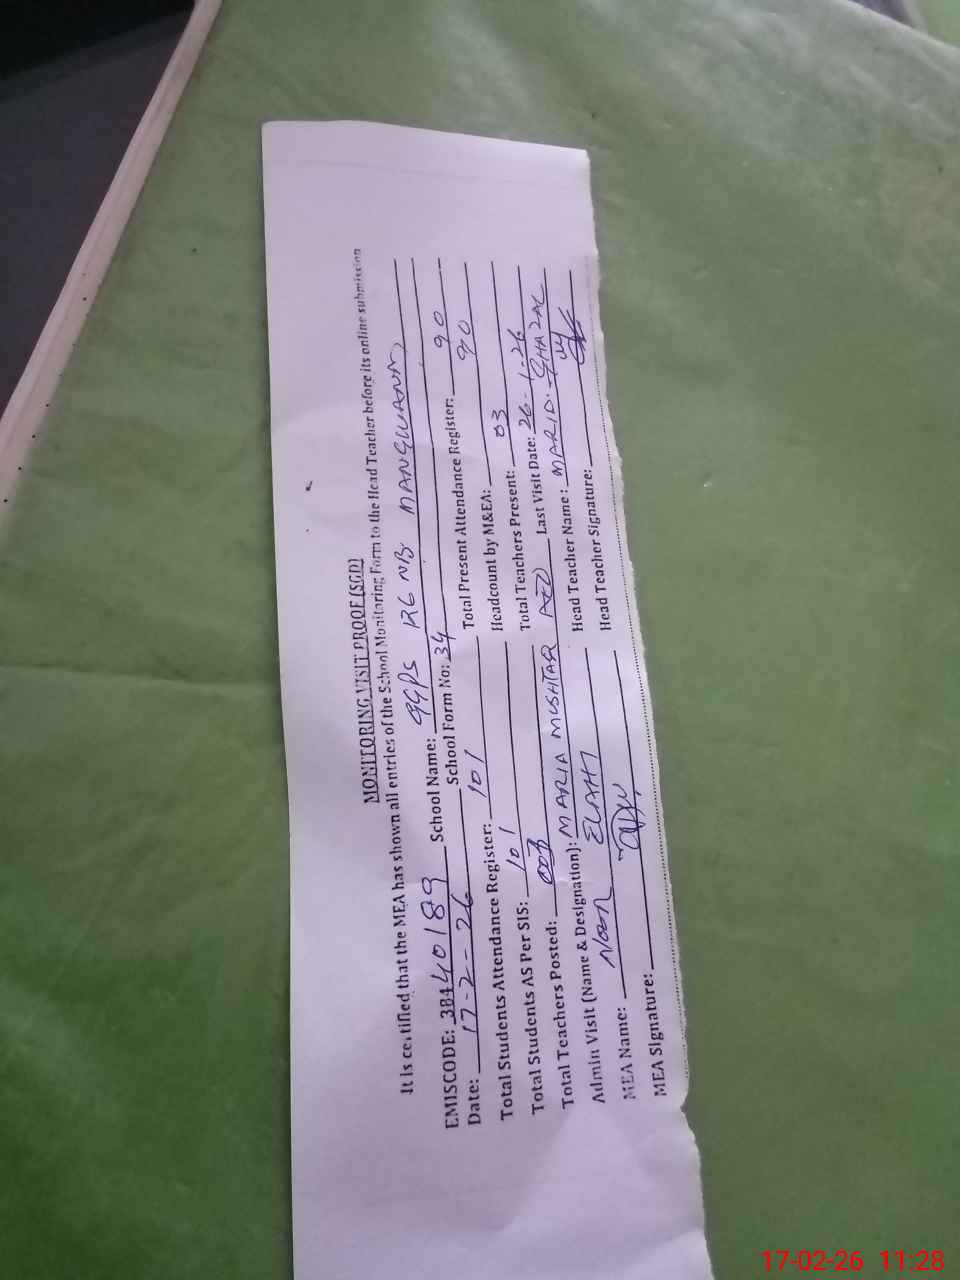 MONITORING VISIT PROOF (SGD)
It is certified that the MEA has shown all entries of the School Monitoring Form to the Head Teacher before its online submission
EMISCODE: 38440189 School Name: GGPS 126 NB MANGWANA
Date: 17-2-26 School Form No: 34
Total Students Attendance Register: 101 Total Present Attendance Register: 90
Total Students AS Per SIS: 101 Headcount by M&EA: 90
Total Teachers Posted: 003 Total Teachers Present: 03
Admin Visit (Name & Designation): MARIA MUSHTAQ AEO Last Visit Date: 26-1-26
MEA Name: NOOR ELAHI Head Teacher Name:
MEA Signature: Head Teacher Signature:
17-02-26 11:28